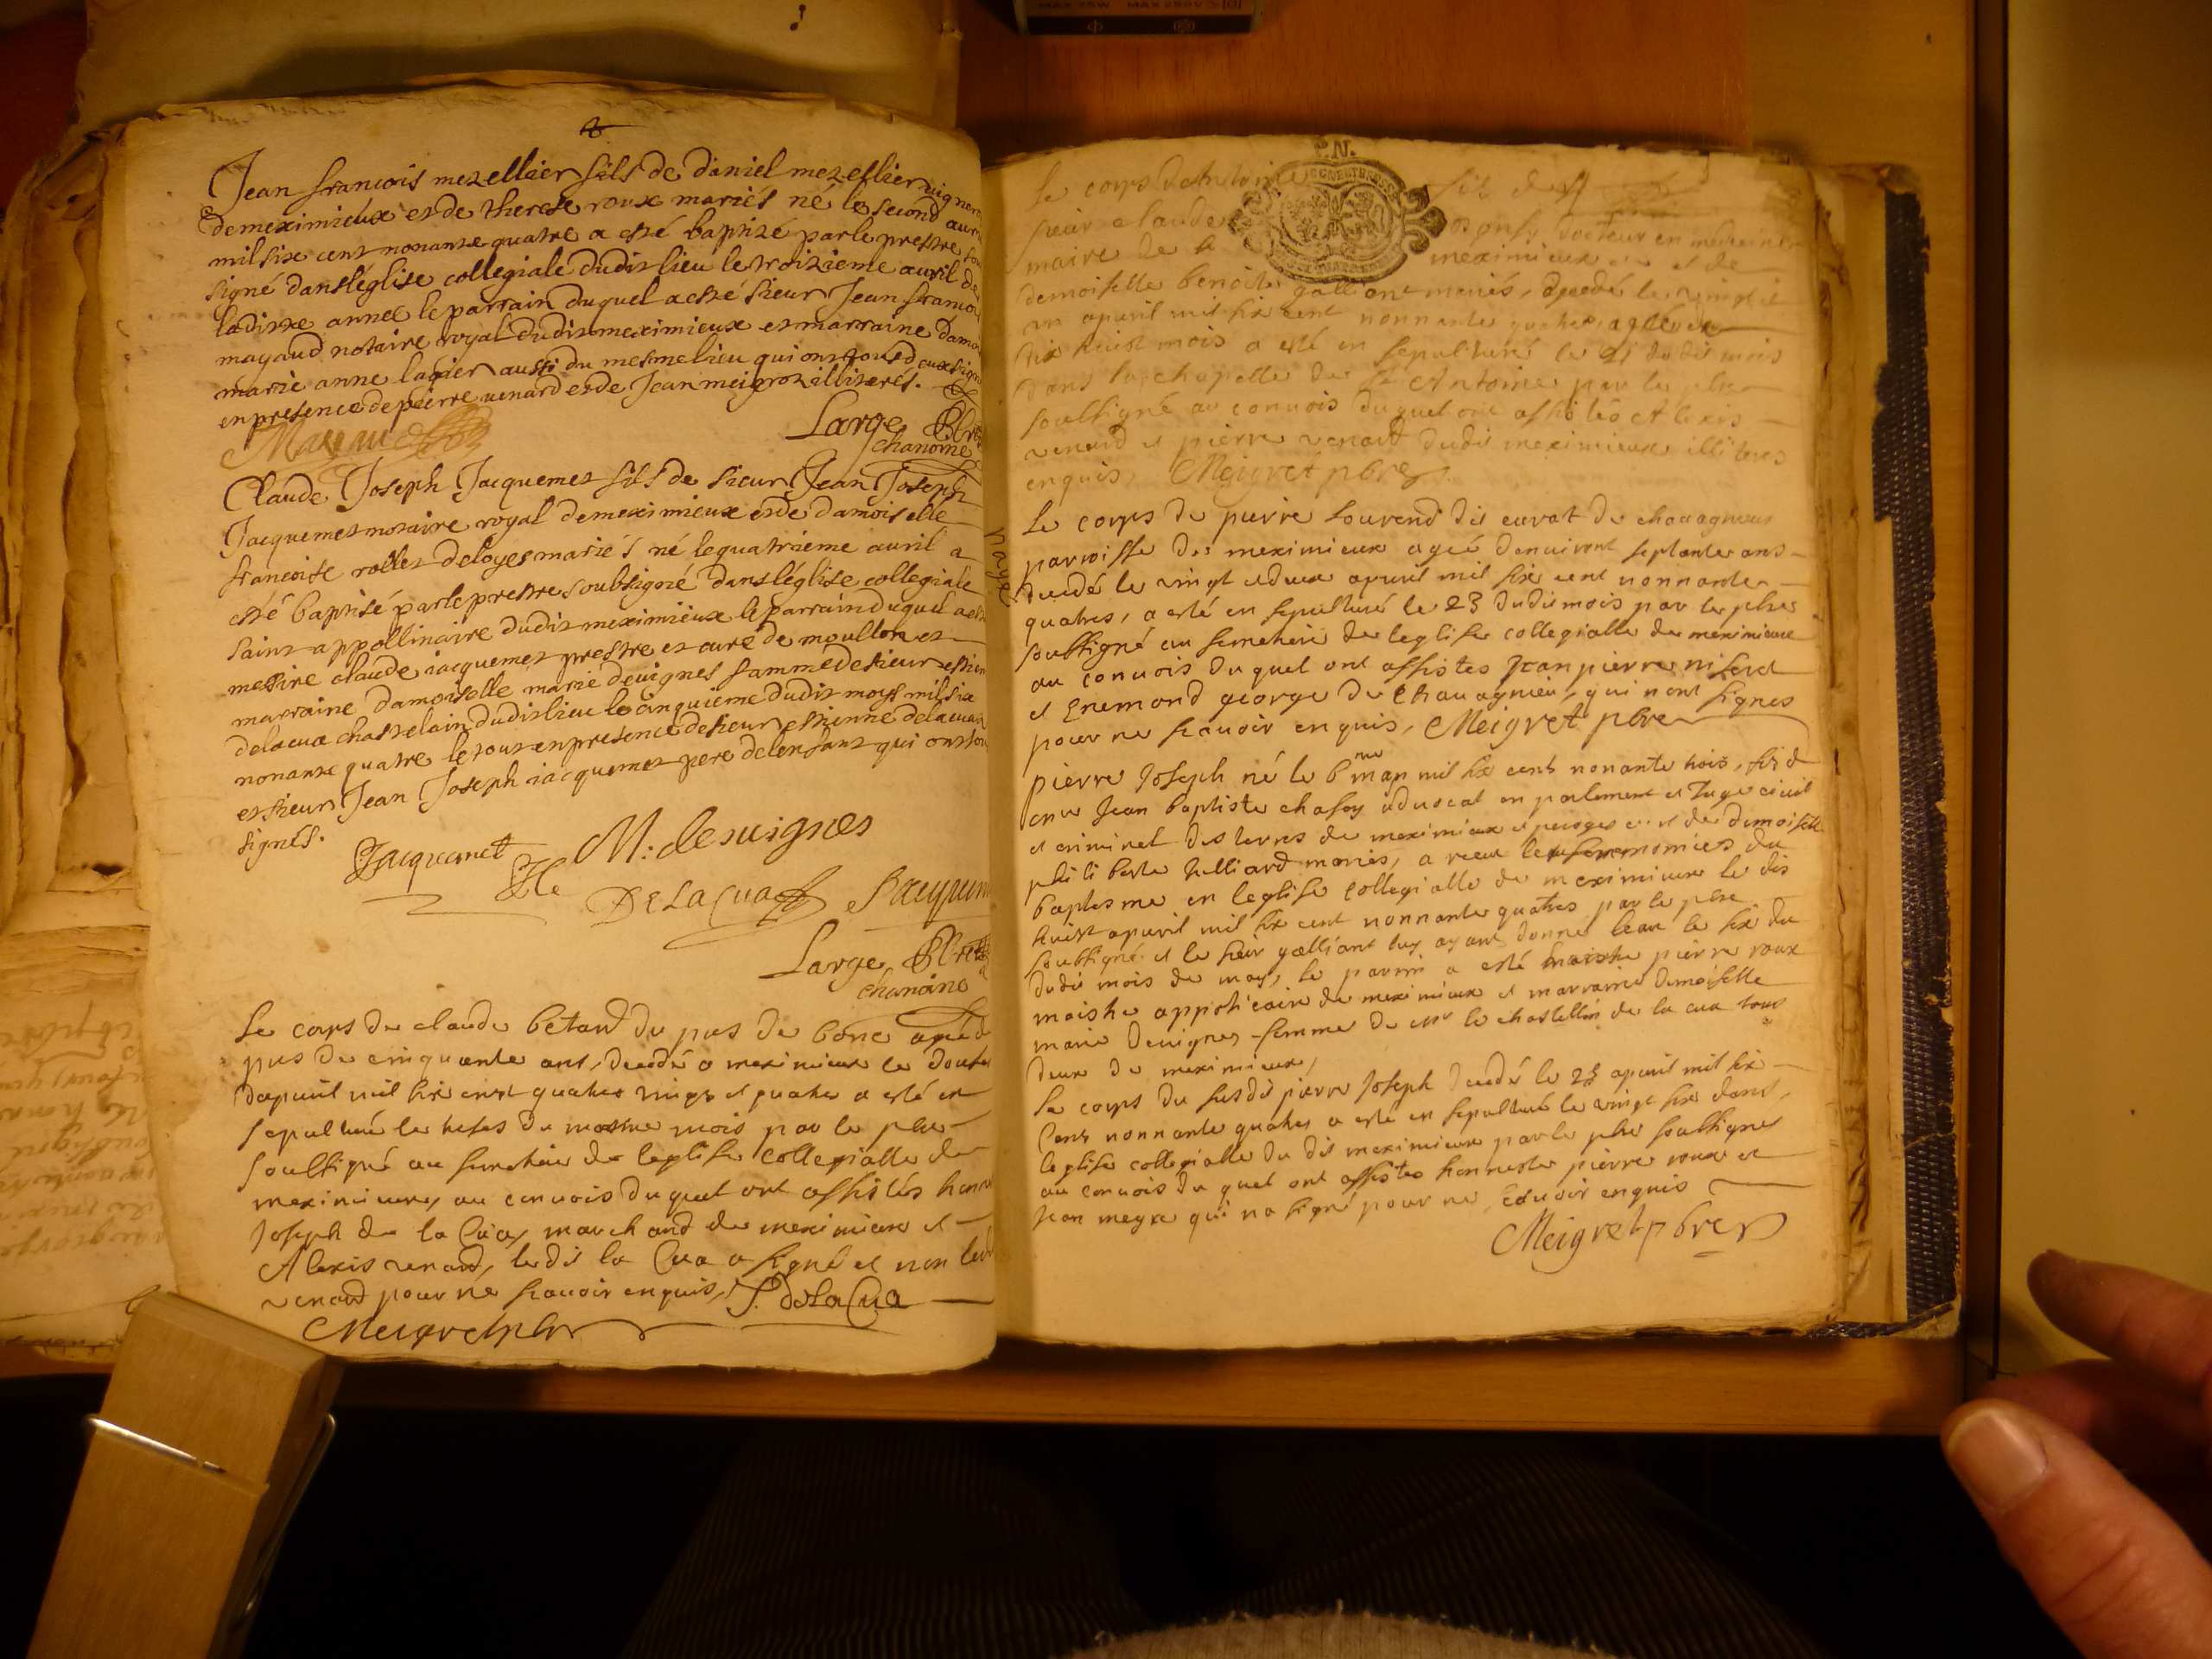 Jean francois mezellier fils de daniel mezellier vigneron
demeximieux et de therese roux mariés né le second auril
mil six cent nonante quatre a esté baptizé par le prestre sou
signé dans léglise collegiale dudit lieu le troizieme auril de
laditte année le parrain duquel a esté sieur Jean francois
mayaud notaire royal dudit meximieux et marraine damo
marie anne lagier aussi du mesme lieu qui ont tous deux signé
en presence de pierre uenard et de Jean meigroz illiterés.
Mayaud
Large Pbre
chanoine
Claude Joseph Jacquemet fils de sieur Jean Joseph
Jacquemet notaire royal demeximieux et de damoiselle
francoise rollet deloyes mariés né le quatrieme auril a
esté baptisé par le prestre soubsigné dans léglise collegiale
saint appollinaire dudit meximieux le parrain duquel a esté
messire claude iacquemet prestre et curé de moullon et
marraine damoiselle marie deuignes famme de sieur estien
delacua chastelain dudit lieu le cinquieme dudit moys mil six
nonante quatre le tout en presence de sieur estienne delacua
et sieur Jean Joseph iacquemet pere de lenfant qui ont tou
signés.
Jacquemet M: desuignes
DeLaCua Jacquem
Large Pbre
chanoine
Le corps de claude betand du pus de bonc agé de
pus de cinquante ans, decedé a meximieux le douze
dapuril mil six cent quatre vingt et quatre a esté en
sepulturé le treses du mesme mois par le pbre
soussigné au semetiere de leglise collegialle de
meximieux, au conuois du quel ont assistés honn
Joseph de la Cua, marchand de meximieux et
Alexis venard, ledis la Cua a signé et non led
venard pour ne scauoir enquis, J. de la Cua
Meigret pbre
P.N.
Le corps dantoine fils de
sieur claude docteur en medecine
maire de meximieux et de
demoiselle benoite galliont mariés, decedé le vingt et
un apuril mil six cent nonnante quatre, agé de
dix huist mois a esté en sepulturé le 21 dudis mois
dans la chapelle de St Antoine par le pbre
soussigné au conuois duquel ont assistés Alexis
venard et pierre venard dudis meximieux illiteres
enquis, Meigret pbre
page
Le corps de pierre lourend dis curat de chauagneux
parroisse de meximieux agé denuiront septante ans
decedé le vingt et deux apuril mil six cent nonnante
quatres, a esté en sepulturé le 23 dudis mois par le pbre
soussigné au semetiere de leglise collegialle de meximieux
au conuois du quel ont assistes Jean pierre niserd
et Enemond george de Chauagnieu, qui nont signes
pour ne scauoir enquis, Meigret pbre
pierre Joseph né le 6me may mil six cents nonante trois, fis d
en Jean baptiste chasey aduocat en parlement et Juge ciuil
et criminel des terres de meximieux et peroges et de demoiselle
philiberte helliard mariés, a receu les seremonies du
baptesme en leglise collegialle de meximieux le dis
huist apuril mil six cent nonnante quatres par le pbre
soussigné, et le sieur galliant luy ayant donné leau le six du
dudis mois de may, le parrin a esté maistre pierre roux
maistre appoticaire de meximieux et marraine demoiselle
marie deuignes femme de mr le chastellin de la cua tous
deux de meximieux,
Le corps du susdis pierre Joseph decedé le 25 apuril mil six
cens nonnante quatres a esté en sepulturé le vingt six dans
leglise collegialle du dis meximieux par le pbre soussignes
au conuois du quel ont assistes honneste pierre roux et
Jean meyre qui na signé pour ne scauoir enquis
Meigret pbre